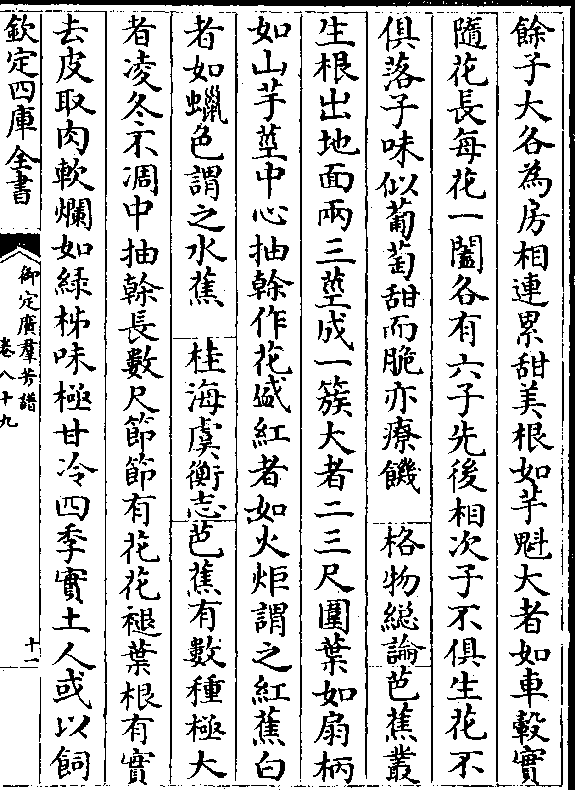 餘子大各為房相連累甜美根如芋魁大者如車轂實
隨花長每花一闔各有六子先後相次子不俱生花不
俱落子味似葡萄甜而脆亦療饑　格物總論芭蕉叢
生根出地面兩三莖成一簇大者二三尺圍葉如扇柄
如山芋莖中心抽榦作花盛紅者如火炬謂之紅蕉白
者如蠟色謂之水蕉　桂海虞衡志芭蕉有數種極大
者凌冬不凋中抽榦長數尺節節有花花褪葉根有實
去皮取肉軟爛如綠柹味極甘冷四季實土人或以飼
欽定四庫全書
御定廣羣芳譜
卷八十九
十一